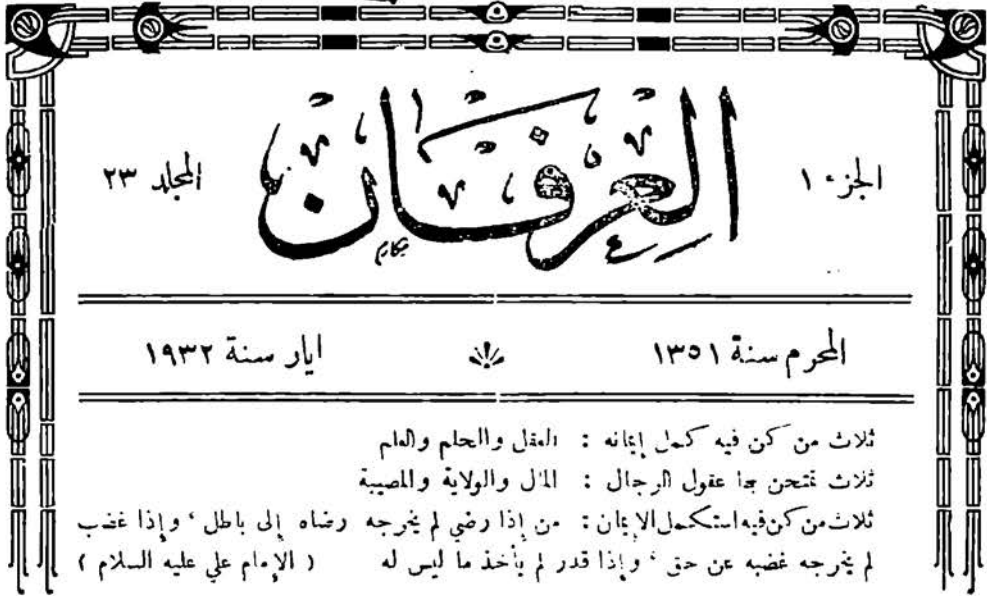 الجزء ١
العرفان
المجلد ٢٣
المحرم سنة ١٣٥١
ايار سنة ١٩٣٢
ثلاث من كن فيه كمل إيمانه : العقل والحلم والعلم
ثلاث تمتحن بها عقول الرجال : المال والولاية والمصيبة
ثلاث من كن فيه استكمل الايمان : من إذا رضي لم يخرجه رضاه إلى باطل ، وإذا غضب
لم يخرجه غضبه عن حق ، وإذا قدر لم يأخذ ما ليس له ( الإمام علي عليه السلام )